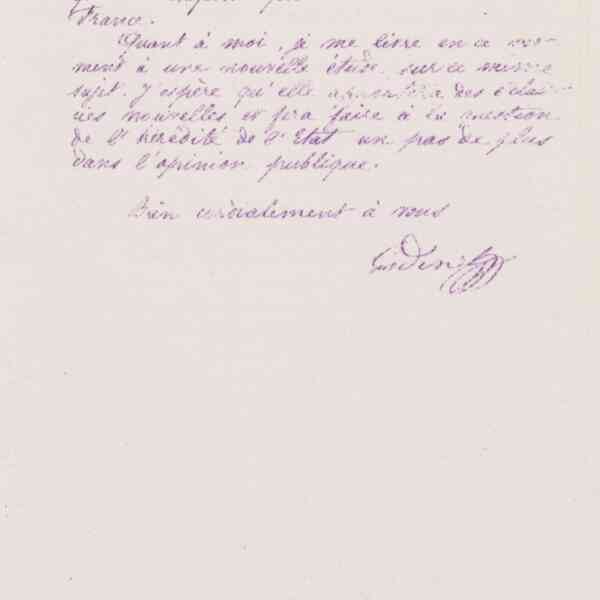 France.
Quant à moi, je me livre en ce mo-
ment à une nouvelle étude sur ce même
sujet. J'espère qu'elle apportera des
nouvelles et fera faire à la question
de l'hérédité de l'Etat un pas de plus
dans l'opinion publique.
Bien cordialement à vous
Godin